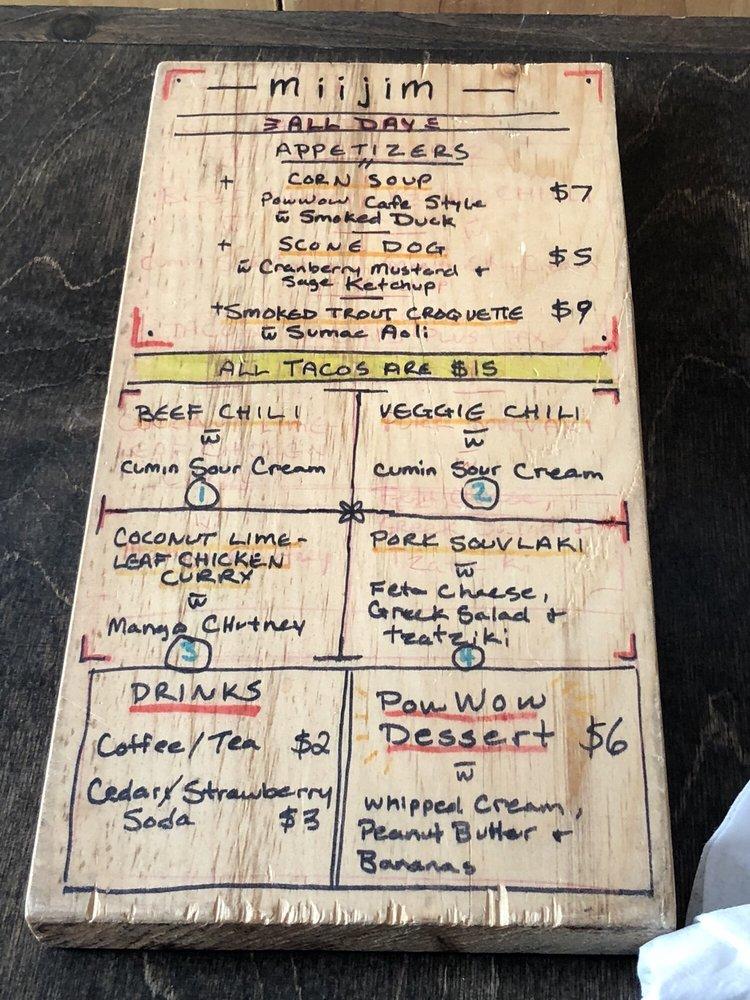 — miijim —
ALL DAY
APPETIZERS
+ CORN SOUP $7
Powwow Cafe Style
w̄ Smoked Duck
+ SCONE DOG $5
w̄ Cranberry Mustard +
Sage Ketchup
+ SMOKED TROUT CROQUETTE $9
w̄ Sumac Aoli
ALL TACOS ARE $15
BEEF CHILI
w̄
Cumin Sour Cream
1
VEGGIE CHILI
w̄
Cumin Sour Cream
2
COCONUT LIME-
LEAF CHICKEN
CURRY
w̄
Mango CHutney
3
PORK SOUVLAKI
w̄
Feta Cheese,
Greek Salad +
tzatziki
4
DRINKS
Coffee/Tea $2
Cedar/Strawberry
Soda $3
PowWow
Dessert $6
w̄
whipped Cream,
Peanut Butter +
Bananas